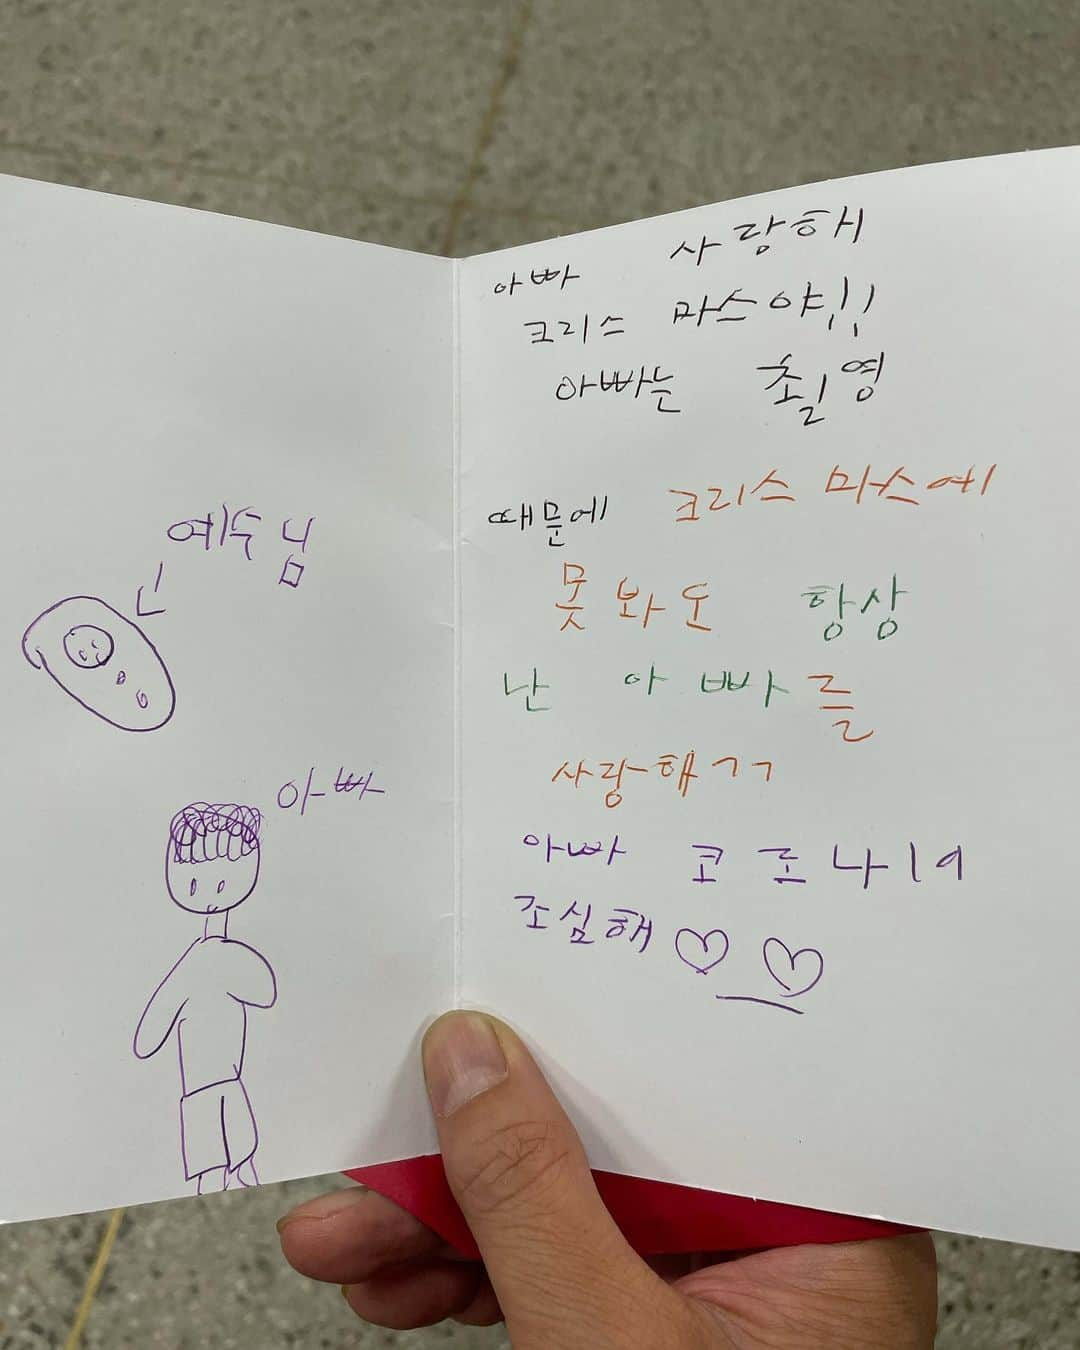 예수님
아빠
아빠 사랑해
크리스 마스야!!
아빠는 촬영
때문에 크리스 마스에
못 봐도 항상
난 아빠를
사랑해 ㄱㄱ
아빠 코로나19
조심해 ♡ ♡